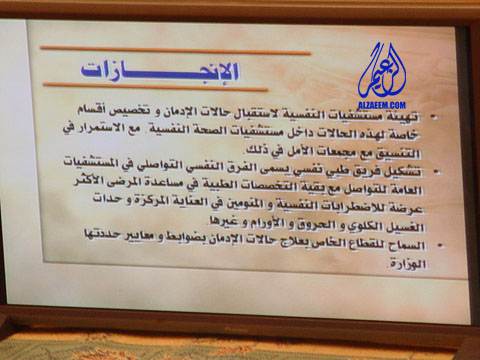 الإنجـــازات
الزعيم
ALZAEEM.COM
تهيئة مستشفيات النفسية لاستقبال حالات الإدمان و تخصيص أقسام
خاصة لهذه الحالات داخل مستشفيات الصحة النفسية مع الاستمرار في
التنسيق مع مجمعات الأمل في ذلك.
تشكيل فريق طبي نفسي يسمى الفرق النفسي التواصلي في المستشفيات
العامة للتواصل مع بقية التخصصات الطبية في مساعدة المرضى الأكثر
عرضة للاضطرابات النفسية و المنومين في العناية المركزة و حدات
الغسيل الكلوي و الحروق و الأورام و غيرها.
السماح للقطاع الخاص بعلاج حالات الإدمان بضوابط و معايير حددتها
الوزارة.